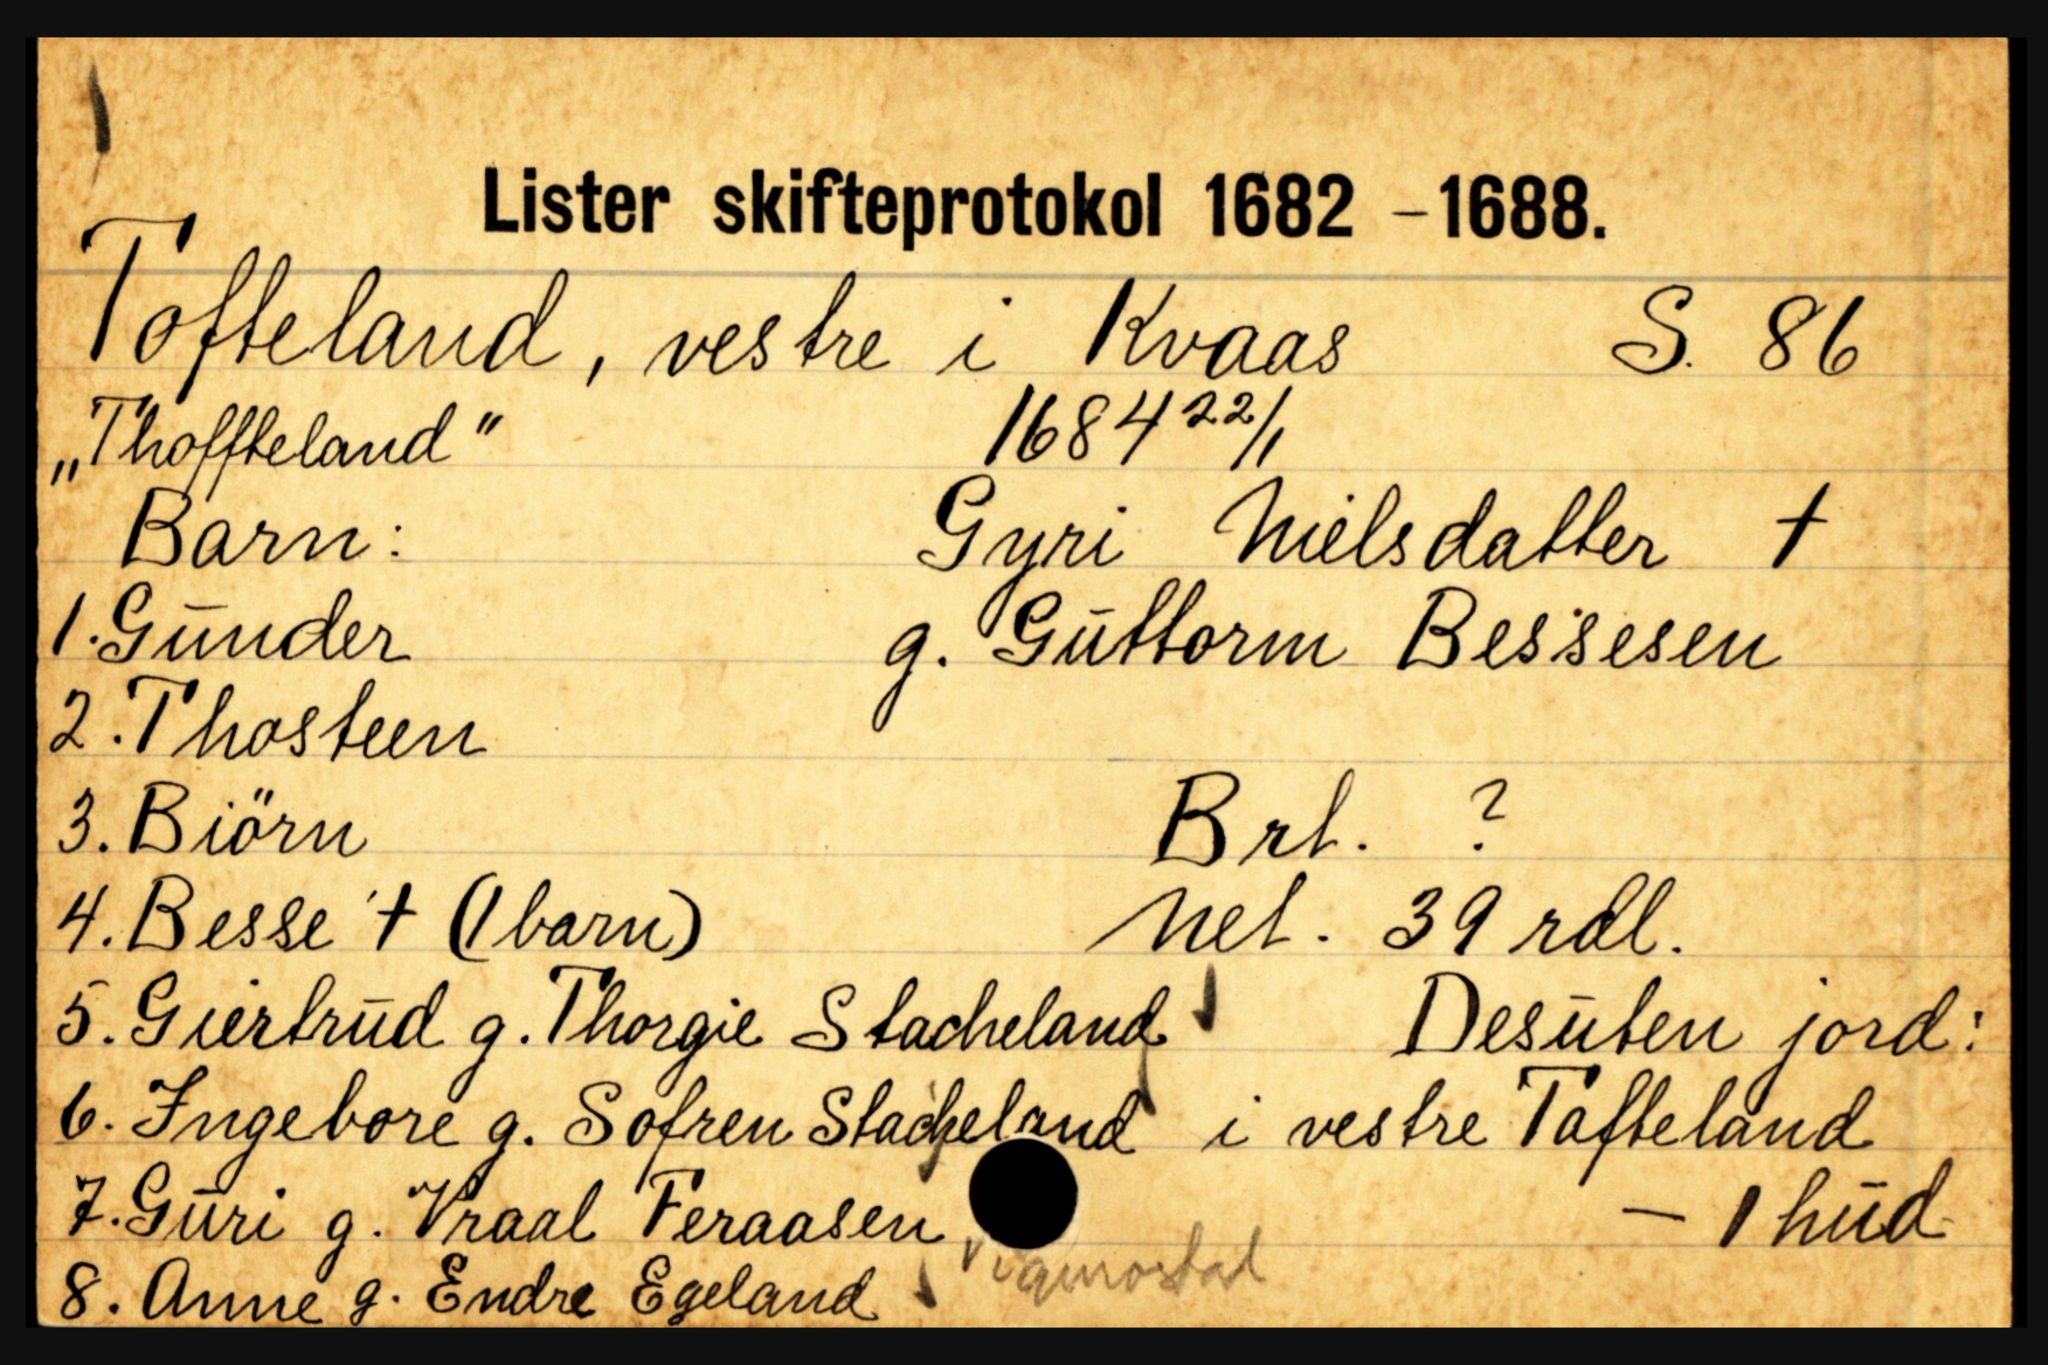 Lister skifteprotokol 1682 – 1688.
Tofteland, vestre i Kvaas S. 86
„Thoffteland" 1684 22/1
Barn: Gyri Nielsdatter †
1. Gunder g. Guttorm Bessesen
2. Thosteen
3. Biörn Brt. ?
4. Besse † (1 barn) Net. 39 rdl.
5. Giertrud g. Thorgie Stacheland Desuten jord:
6. Ingebore g. Sofren Stacheland i vestre Tofteland
7. Guri g. Vraal Feraasen — 1 hud
8. Anne g. Endre Egeland Vigmostad